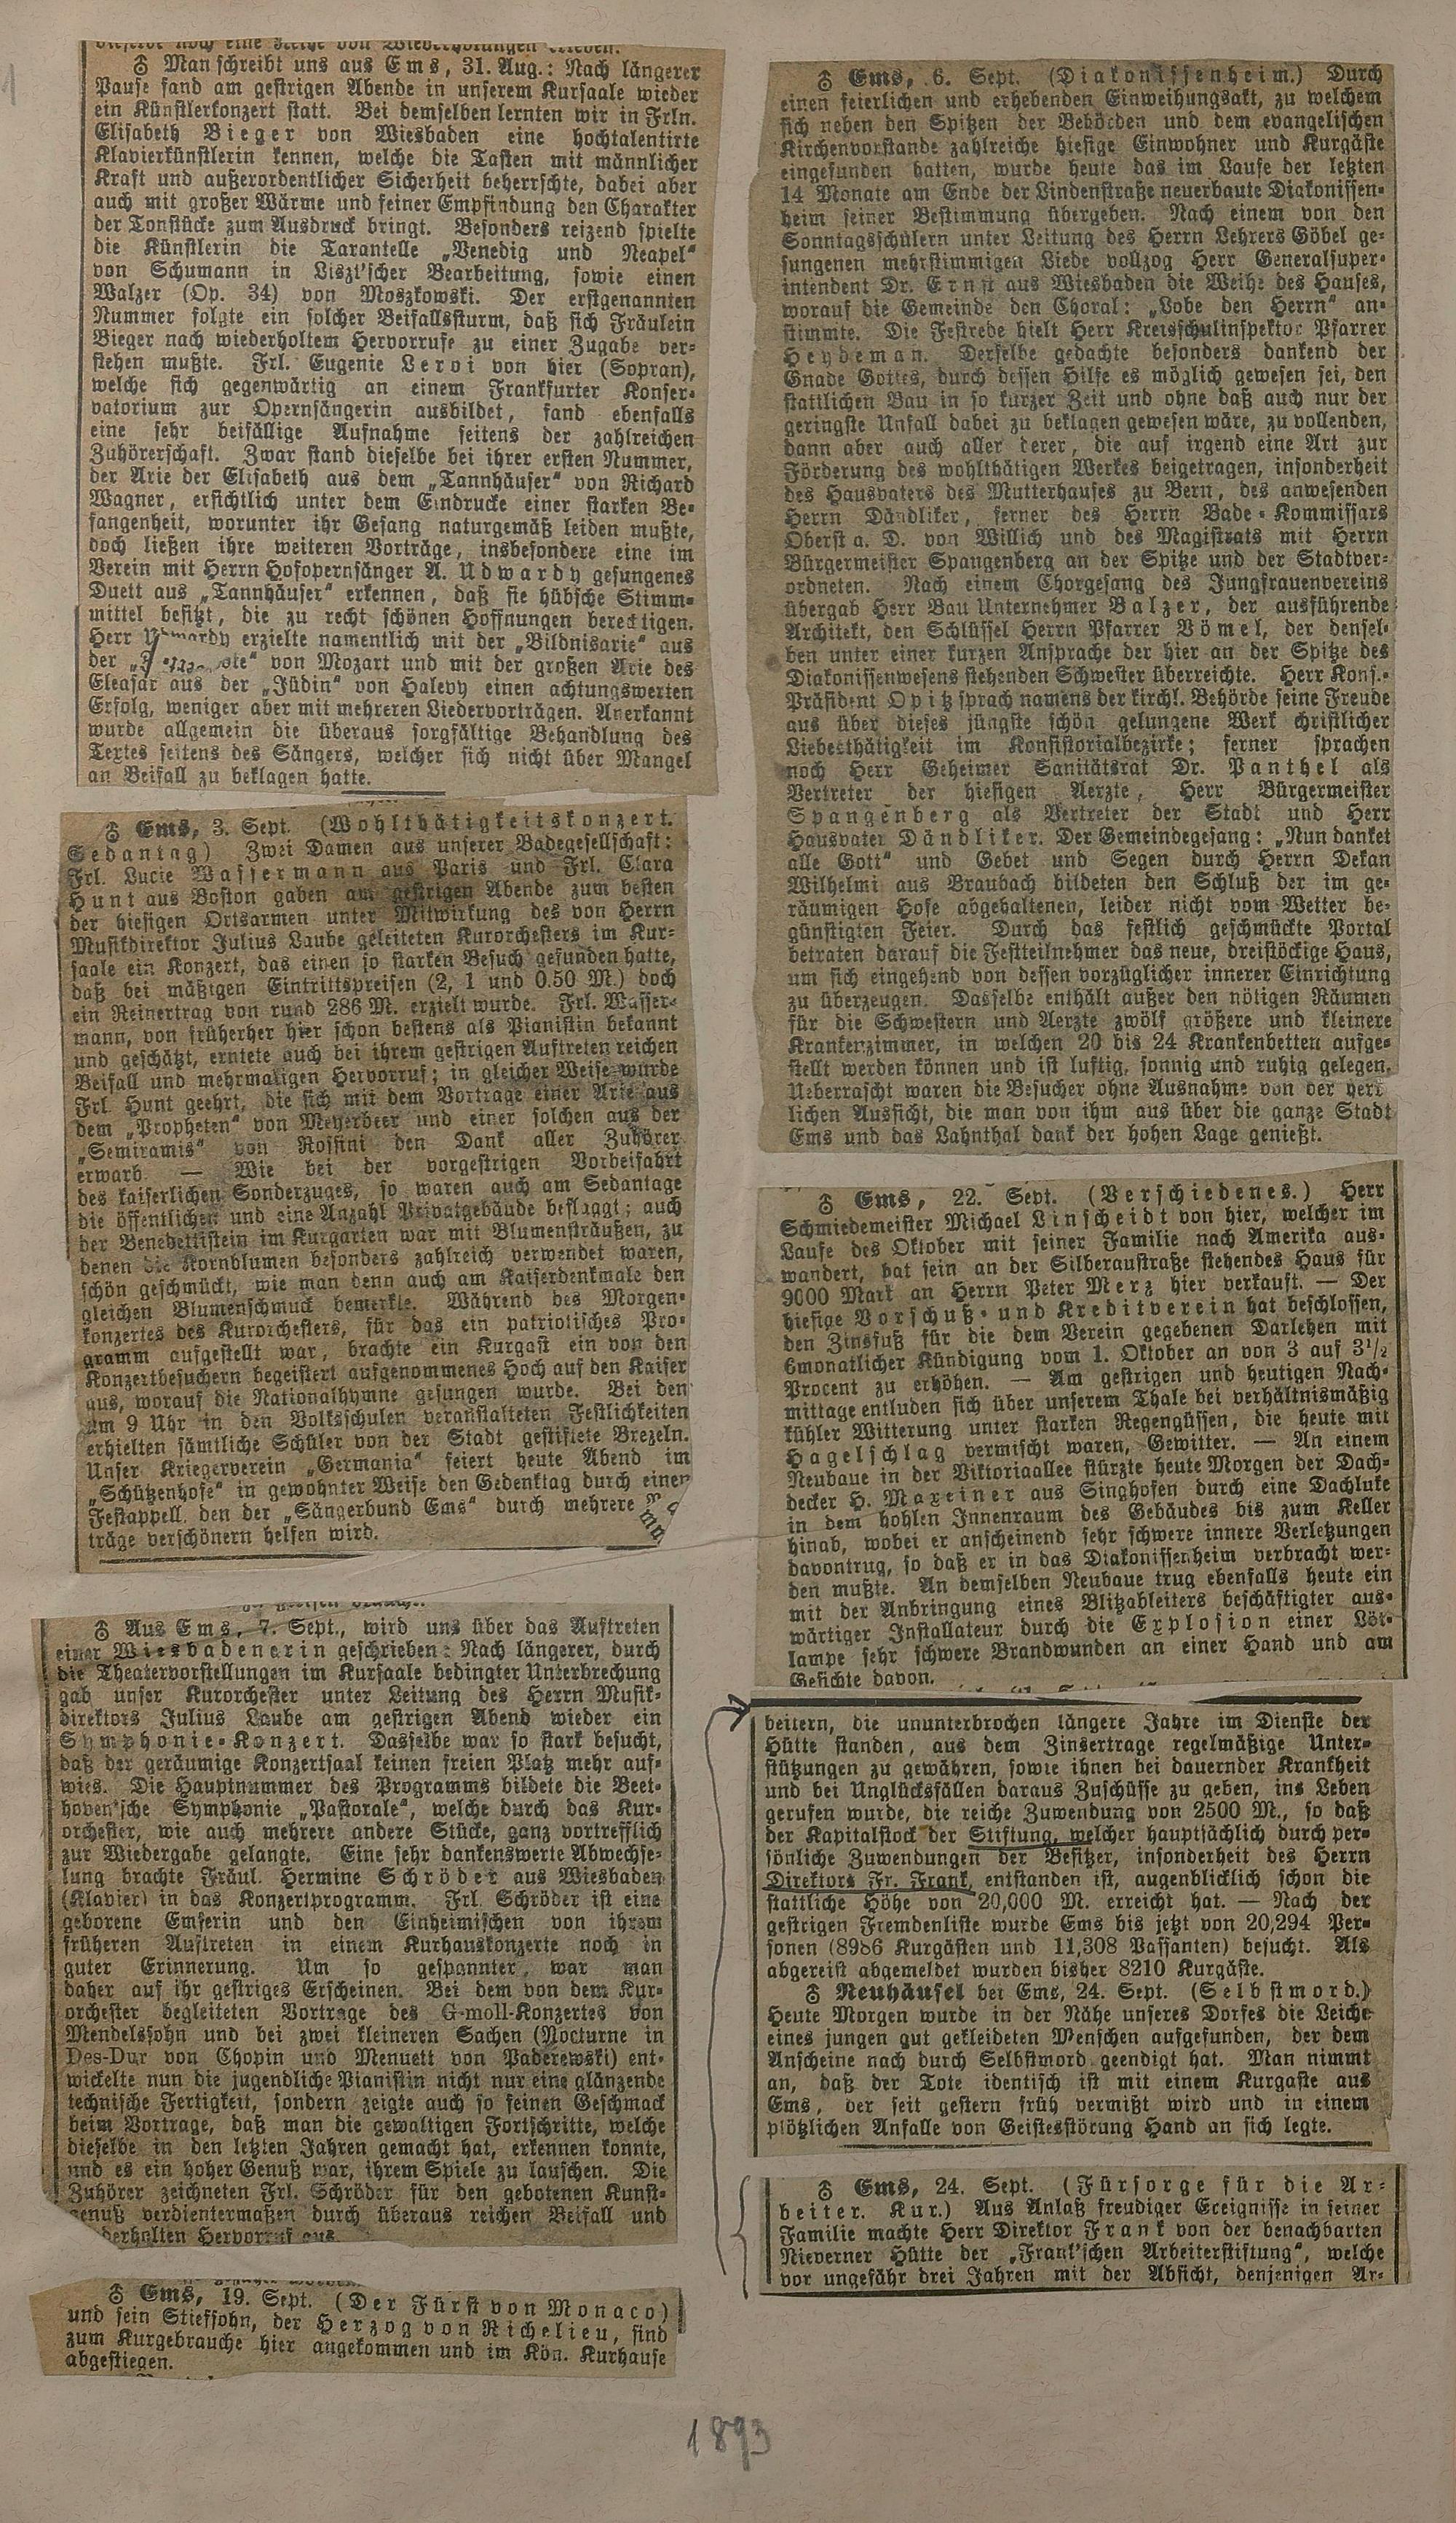 ♁ Man schreibt uns aus Ems, 31. Aug.: Nach längerer
Pause fand am gestrigen Abende in unserem Kursaale wieder
ein Künstlerkonzert statt. Bei demselben lernten wir in Frln.
Elisabeth Bieger von Wiesbaden eine hochtalentirte
Klavierkünstlerin kennen, welche die Tasten mit männlicher
Kraft und außerordentlicher Sicherheit beherrschte, dabei aber
auch mit großer Wärme und feiner Empfindung den Charakter
der Tonstücke zum Ausdruck bringt. Besonders reizend spielte
die Künstlerin die Tarantelle „Venedig und Neapel“
von Schumann in Liszt'scher Bearbeitung, sowie einen
Walzer (Op. 34) von Moszkowski. Der erstgenannten
Nummer folgte ein solcher Beifallssturm, daß sich Fräulein
Bieger nach wiederholtem Hervorrufe zu einer Zugabe ver-
stehen mußte. Frl. Eugenie Leroi von hier (Sopran),
welche sich gegenwärtig an einem Frankfurter Konser-
vatorium zur Opernsängerin ausbildet, fand ebenfalls
eine sehr beifällige Aufnahme seitens der zahlreichen
Zuhörerschaft. Zwar stand dieselbe bei ihrer ersten Nummer,
der Arie der Elisabeth aus dem „Tannhäuser“ von Richard
Wagner, ersichtlich unter dem Eindrucke einer starken Be-
fangenheit, worunter ihr Gesang naturgemäß leiden mußte,
doch ließen ihre weiteren Vorträge, insbesondere eine im
Verein mit Herrn Hofopernsänger A. Udwardy gesungenes
Duett aus „Tannhäuser“ erkennen, daß sie hübsche Stimm-
mittel besitzt, die zu recht schönen Hoffnungen berechtigen.
Herr Udwardy erzielte namentlich mit der „Bildnisarie“ aus
der von Mozart und mit der großen Arie des
Eleasar aus der „Jüdin“ von Halevy einen achtungswerten
Erfolg, weniger aber mit mehreren Liedervorträgen. Anerkannt
wurde allgemein die überaus sorgfältige Behandlung des
Textes seitens des Sängers, welcher sich nicht über Mangel
an Beifall zu beklagen hatte.
♁ Ems, 3. Sept. (Wohlthätigkeitskonzert.
Sedantag) Zwei Damen aus unserer Badegesellschaft:
Frl. Lucie Wassermann aus Paris und Frl. Clara
Hunt aus Boston gaben am gestrigen Abende zum besten
der hiesigen Ortsarmen unter Mitwirkung des von Herrn
Musikdirektor Julius Laube geleiteten Kurorchesters im Kur-
saale ein Konzert, das einen so starken Besuch gefunden hatte,
daß bei mäßigen Eintrittspreisen (2, 1 und 0.50 M.) doch
ein Reinertrag von rund 286 M. erzielt wurde. Frl. Wasser-
mann, von früherher hier schon bestens als Pianistin bekannt
und geschätzt, erntete auch bei ihrem gestrigen Auftreten reichen
Beifall und mehrmaligen Hervorruf; in gleicher Weise wurde
Frl. Hunt geehrt, die sich mit dem Vortrage einer Arie aus
dem „Propheten“ von Meyerbeer und einer solchen aus der
„Semiramis“ von Rossini den Dank aller Zuhörer
erwarb. — Wie bei der vorgestrigen Vorbeifahrt
des kaiserlichen Sonderzuges, so waren auch am Sedantage
die öffentlichen und eine Anzahl Privatgebäude beflaggt; auch
der Benedettistein im Kurgarten war mit Blumensträußen, zu
denen die Kornblumen besonders zahlreich verwendet waren,
schön geschmückt, wie man denn auch am Kaiserdenkmale den
gleichen Blumenschmuck bemerkte. Während des Morgen-
konzertes des Kurorchesters, für das ein patriotisches Pro-
gramm aufgestellt war, brachte ein Kurgast ein von den
Konzertbesuchern begeistert aufgenommenes Hoch auf den Kaiser
aus, worauf die Nationalhymne gesungen wurde. Bei den
um 9 Uhr in den Volksschulen veranstalteten Festlichkeiten
erhielten sämtliche Schüler von der Stadt gestiftete Brezeln.
Unser Kriegerverein „Germania“ feiert heute Abend im
„Schützenhofe“ in gewohnter Weise den Gedenktag durch einen
Festappell, den der „Sängerbund Ems“ durch mehrere
träge verschönern helfen wird.
♁ Aus Ems, 7. Sept., wird uns über das Auftreten
einer Wiesbadenerin geschrieben: Nach längerer, durch
die Theatervorstellungen im Kursaale bedingter Unterbrechung
gab unser Kurorchester unter Leitung des Herrn Musik-
direktors Julius Laube am gestrigen Abend wieder ein
Symphonie-Konzert. Dasselbe war so stark besucht,
daß der geräumige Konzertsaal keinen freien Platz mehr auf-
wies. Die Hauptnummer des Programms bildete die Beet-
hoven'sche Symphonie „Pastorale“, welche durch das Kur-
orchester, wie auch mehrere andere Stücke, ganz vortrefflich
zur Wiedergabe gelangte. Eine sehr dankenswerte Abwechse-
lung brachte Fräul. Hermine Schröder aus Wiesbaden
(Klavier) in das Konzertprogramm. Frl. Schröder ist eine
geborene Emserin und den Einheimischen von ihrem
früheren Auftreten in einem Kurhauskonzerte noch in
guter Erinnerung. Um so gespannter war man
daher auf ihr gestriges Erscheinen. Bei dem von dem Kur-
orchester begleiteten Vortrage des G-moll-Konzertes von
Mendelssohn und bei zwei kleineren Sachen (Nocturne in
Des-Dur von Chopin und Menuett von Paderewski) ent-
wickelte nun die jugendliche Pianistin nicht nur eine glänzende
technische Fertigkeit, sondern zeigte auch so feinen Geschmack
beim Vortrage, daß man die gewaltigen Fortschritte, welche
dieselbe in den letzten Jahren gemacht hat, erkennen konnte,
und es ein hoher Genuß war, ihrem Spiele zu lauschen. Die
Zuhörer zeichneten Frl. Schröder für den gebotenen Kunst-
genuß verdientermaßen durch überaus reichen Beifall und
derholten Hervorruf aus.
♁ Ems, 19. Sept. (Der Fürst von Monaco)
und sein Stiefsohn, der Herzog von Richelieu, sind
zum Kurgebrauche hier angekommen und im Kön. Kurhause
abgestiegen.
♁ Ems, 6. Sept. (Diakonissenheim.) Durch
einen feierlichen und erhebenden Einweihungsakt, zu welchem
sich neben den Spitzen der Behörden und dem evangelischen
Kirchenvorstande zahlreiche hiesige Einwohner und Kurgäste
eingefunden hatten, wurde heute das im Laufe der letzten
14 Monate am Ende der Lindenstraße neuerbaute Diakonissen-
heim seiner Bestimmung übergeben. Nach einem von den
Sonntagsschülern unter Leitung des Herrn Lehrers Göbel ge-
sungenen mehrstimmigen Liede vollzog Herr Generalsuper-
intendent Dr. Ernst aus Wiesbaden die Weihe des Hauses,
worauf die Gemeinde den Choral: „Lobe den Herrn“ an-
stimmte. Die Festrede hielt Herr Kreisschulinspektor Pfarrer
Heydeman. Derselbe gedachte besonders dankend der
Gnade Gottes, durch dessen Hilfe es möglich gewesen sei, den
stattlichen Bau in so kurzer Zeit und ohne daß auch nur der
geringste Unfall dabei zu beklagen gewesen wäre, zu vollenden,
dann aber auch aller derer, die auf irgend eine Art zur
Förderung des wohlthätigen Werkes beigetragen, insonderheit
des Hausvaters des Mutterhauses zu Bern, des anwesenden
Herrn Dändliker, ferner des Herrn Bade-Kommissars
Oberst a. D. von Willich und des Magistrats mit Herrn
Bürgermeister Spangenberg an der Spitze und der Stadtver-
ordneten. Nach einem Chorgesang des Jungfrauenvereins
übergab Herr Bau Unternehmer Balzer, der ausführende
Architekt, den Schlüssel Herrn Pfarrer Vömel, der densel-
ben unter einer kurzen Ansprache der hier an der Spitze des
Diakonissenwesens stehenden Schwester überreichte. Herr Kons.-
Präsident Opitz sprach namens der kirchl. Behörde seine Freude
aus über dieses jüngste schön gelungene Werk christlicher
Liebesthätigkeit im Konsistorialbezirke; ferner sprachen
noch Herr Geheimer Sanitätsrat Dr. Panthel als
Vertreter der hiesigen Aerzte, Herr Bürgermeister
Spangenberg als Vertreter der Stadt und Herr
Hausvater Dändliker. Der Gemeindegesang: „Nun danket
alle Gott“ und Gebet und Segen durch Herrn Dekan
Wilhelmi aus Braubach bildeten den Schluß der im ge-
räumigen Hofe abgehaltenen, leider nicht vom Wetter be-
günstigten Feier. Durch das festlich geschmückte Portal
betraten darauf die Festteilnehmer das neue, dreistöckige Haus,
um sich eingehend von dessen vorzüglicher innerer Einrichtung
zu überzeugen. Dasselbe enthält außer den nötigen Räumen
für die Schwestern und Aerzte zwölf größere und kleinere
Krankenzimmer, in welchen 20 bis 24 Krankenbetten aufge-
stellt werden können und ist luftig, sonnig und ruhig gelegen.
Ueberrascht waren die Besucher ohne Ausnahme von der herr
lichen Aussicht, die man von ihm aus über die ganze Stadt
Ems und das Lahnthal dank der hohen Lage genießt.
♁ Ems, 22. Sept. (Verschiedenes.) Herr
Schmiedemeister Michael Linscheidt von hier, welcher im
Laufe des Oktober mit seiner Familie nach Amerika aus-
wandert, hat sein an der Silberaustraße stehendes Haus für
9000 Mark an Herrn Peter Merz hier verkauft. — Der
hiesige Vorschuß- und Kreditverein hat beschlossen,
den Zinsfuß für die dem Verein gegebenen Darlehen mit
6monatlicher Kündigung vom 1. Oktober an von 3 auf 3½
Procent zu erhöhen. — Am gestrigen und heutigen Nach-
mittage entluden sich über unserem Thale bei verhältnismäßig
kühler Witterung unter starken Regengüssen, die heute mit
Hagelschlag vermischt waren, Gewitter. — An einem
Neubaue in der Viktoriaallee stürzte heute Morgen der Dach-
decker H. Maxeiner aus Singhofen durch eine Dachluke
in dem hohlen Innenraum des Gebäudes bis zum Keller
hinab, wobei er anscheinend sehr schwere innere Verletzungen
davontrug, so daß er in das Diakonissenheim verbracht wer-
den mußte. An demselben Neubaue trug ebenfalls heute ein
mit der Anbringung eines Blitzableiters beschäftigter aus-
wärtiger Installateur durch die Explosion einer Löt-
lampe sehr schwere Brandwunden an einer Hand und am
Gesichte davon.
beitern, die ununterbrochen längere Jahre im Dienste der
Hütte standen, aus dem Zinsertrage regelmäßige Unter-
stützungen zu gewähren, sowie ihnen bei dauernder Krankheit
und bei Unglücksfällen daraus Zuschüsse zu geben, ins Leben
gerufen wurde, die reiche Zuwendung von 2500 M., so daß
der Kapitalstock der Stiftung, welcher hauptsächlich durch per-
sönliche Zuwendungen der Besitzer, insonderheit des Herrn
Direktors Fr. Frank, entstanden ist, augenblicklich schon die
stattliche Höhe von 20,000 M. erreicht hat. — Nach der
gestrigen Fremdenliste wurde Ems bis jetzt von 20,294 Per-
sonen (8986 Kurgästen und 11,308 Passanten) besucht. Als
abgereist abgemeldet wurden bisher 8210 Kurgäste.
♁ Neuhäusel bei Ems, 24. Sept. (Selbstmord.)
Heute Morgen wurde in der Nähe unseres Dorfes die Leiche
eines jungen gut gekleideten Menschen aufgefunden, der dem
Anscheine nach durch Selbstmord geendigt hat. Man nimmt
an, daß der Tote identisch ist mit einem Kurgaste aus
Ems, der seit gestern früh vermißt wird und in einem
plötzlichen Anfalle von Geistesstörung Hand an sich legte.
♁ Ems, 24. Sept. (Fürsorge für die Ar-
beiter. Kur.) Aus Anlaß freudiger Ereignisse in seiner
Familie machte Herr Direktor Frank von der benachbarten
Nieverner Hütte der „Frank'schen Arbeiterstiftung“, welche
vor ungefähr drei Jahren mit der Absicht, denjenigen Ar-
1893